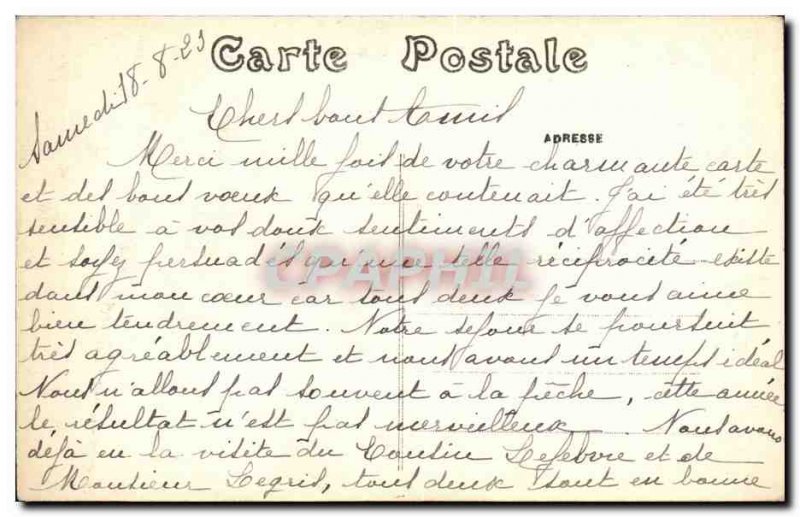 Carte Postale
Samedi 18-8-23
Chers bons Amis
ADRESSE
Merci mille fois de votre charmante carte
et des bons vœux qu'elle contenait. J'ai été très
sensible à vos doux sentiments d'affection
et soyez persuadés qu'une telle réciprocité existe
dans mon cœur car tous deux je vous aime
bien tendrement. Notre séjour se poursuit
très agréablement et nous avons un temps idéal
Nous n'allons pas souvent à la pêche, cette année
le résultat n'est pas merveilleux. Nous avons
déjà eu la visite du Cousin Lefebvre et de
Monsieur Legris, tous deux sont en bonne
CPAPHIL